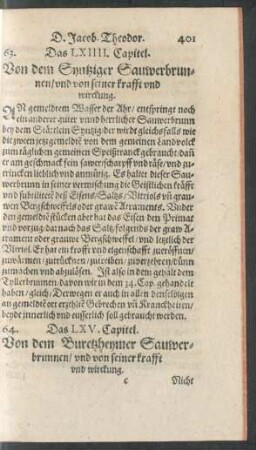 D. Jacob. Theodor. 401
63. Das LXIIII. Capitel.
Von dem Syntziger Sauwerbrun-
nen/ vnd von seiner krafft vnd
wirckung.
IN gemeldtem Wasser der Ahr/ entspringt noch
ein anderer guter vnnd herrlicher Sauwerbrunn
bey dem Stättlein Syntzig/ der wirdt gleichsfalls wie
die zween jetzt gemeldte von dem gemeinen Landvolck
zum täglichen gemeinen Speißtranck gebraucht/ dañ
er am geschmack fein sawerscharpff vnd räß/ vnd zu-
trincken lieblich vnd anmütig. Es haltet dieser Sau-
werbrunn in seiner vermischung die Geistlichen kräfft
vnd subtilitet deß Eisens/ Saltz/ Vitriols vñ grau-
wen Bergschweffels oder grauwẽ Atraments. Vnder
den gemeldtẽ stücken aber hat das Eisen den Primat
vnd vorzug/ darnach das Saltz/ folgends der graw A-
trament oder grauwe Bergschweffel/ vnd letzlich der
Vitriol. Er hat ein krafft vnd eigenschafft zueröffnen/
zuwärmen/ zutrücknen/ zutreiben/ zuderzehren/ dünn
zumachen vnd abzulösen. Ist also in dem gehalt dem
Tollerbrunnen/ davon wir in dem 34. Cap. gehandelt
haben/ gleich/ Derwegen er auch in allen denselbigen
an gemeldtẽ ort erzehltẽ Gebrechen vñ Kranckheiten/
beyde innerlich vnd eusserlich soll gebraucht werden.
64. Das LXV. Capitel.
Von dem Buretzheymer Sauwer-
brunnen/ vnd von seiner krafft
vnd wirckung.
c Nicht